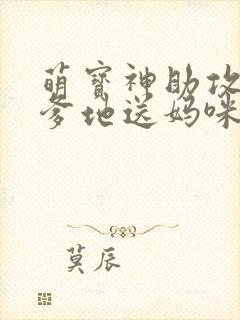 萌宝神助攻
爹地送妈咪
莫辰